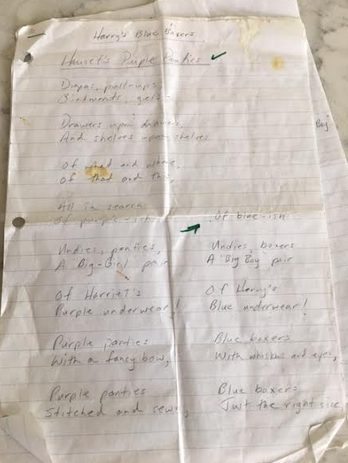 Harry's Blue Boxers
Harriet's Purple Panties
Diapers, pull-ups,
Ointments, gels
Drawers upon drawers,
And shelves upon shelves
Of and
Of that and this,
All in search
Of purple-ish
Of blue-ish
Undies, panties,
A Big-Girl pair
Undies, boxers
A Big Boy pair
Of Harriet's
Purple underwear!
Of Harry's
Blue underwear!
Purple panties
With a fancy bow,
Blue boxers
With whiskers and eyes,
Purple panties
Stitched and sewn,
Blue boxers
Just the right size